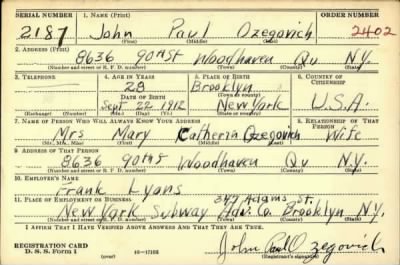 SERIAL NUMBER 1. NAME (Print) ORDER NUMBER
2187 John Paul Ozegovich 2402
(First) (Middle) (Last)
2. ADDRESS (Print)
8636 90th St Woodhaven Qu N.Y.
(Number and street or R. F. D. number) (Town) (County) (State)
3. TELEPHONE 4. AGE IN YEARS 5. PLACE OF BIRTH 6. COUNTRY OF CITIZENSHIP
28 Brooklyn
DATE OF BIRTH (Town or county)
Sept 22 1912 New York U.S.A.
(Exchange) (Number) (Mo.) (Day) (Yr.) (State or country)
7. NAME OF PERSON WHO WILL ALWAYS KNOW YOUR ADDRESS 8. RELATIONSHIP OF THAT PERSON
Mrs Mary Catherin Ozegovich Wife
(Mr., Mrs., Miss) (First) (Middle) (Last)
9. ADDRESS OF THAT PERSON
8636 90th St Woodhaven Qu N.Y.
(Number and street or R. F. D. number) (Town) (County) (State)
10. EMPLOYER'S NAME
Frank Lyons
11. PLACE OF EMPLOYMENT OR BUSINESS 347 Adams St.
New York Subway Adv. Co. Brooklyn N.Y.
(Number and street or R. F. D. number) (Town) (County) (State)
I AFFIRM THAT I HAVE VERIFIED ABOVE ANSWERS AND THAT THEY ARE TRUE.
REGISTRATION CARD
D. S. S. Form 1 (over) 16—17105
John Paul Ozegovich